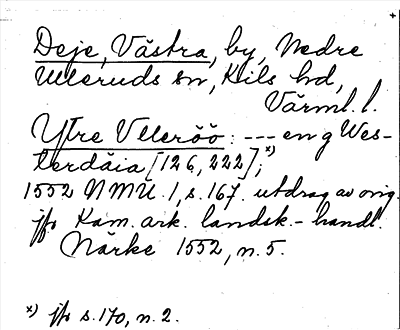 +
Deje, Västra, by, Nedre
Ulleruds sn, Kils hd,
Värml. l.
Ytre Vlleröö: --- en g Wes-
terdäia [126, 222];x)
1552 NMU. 1, s. 167. utdrag av orig.
jfr Kam. ark. landsk.-handl.
Närke 1552, n. 5.
x) jfr s. 170, n. 2.